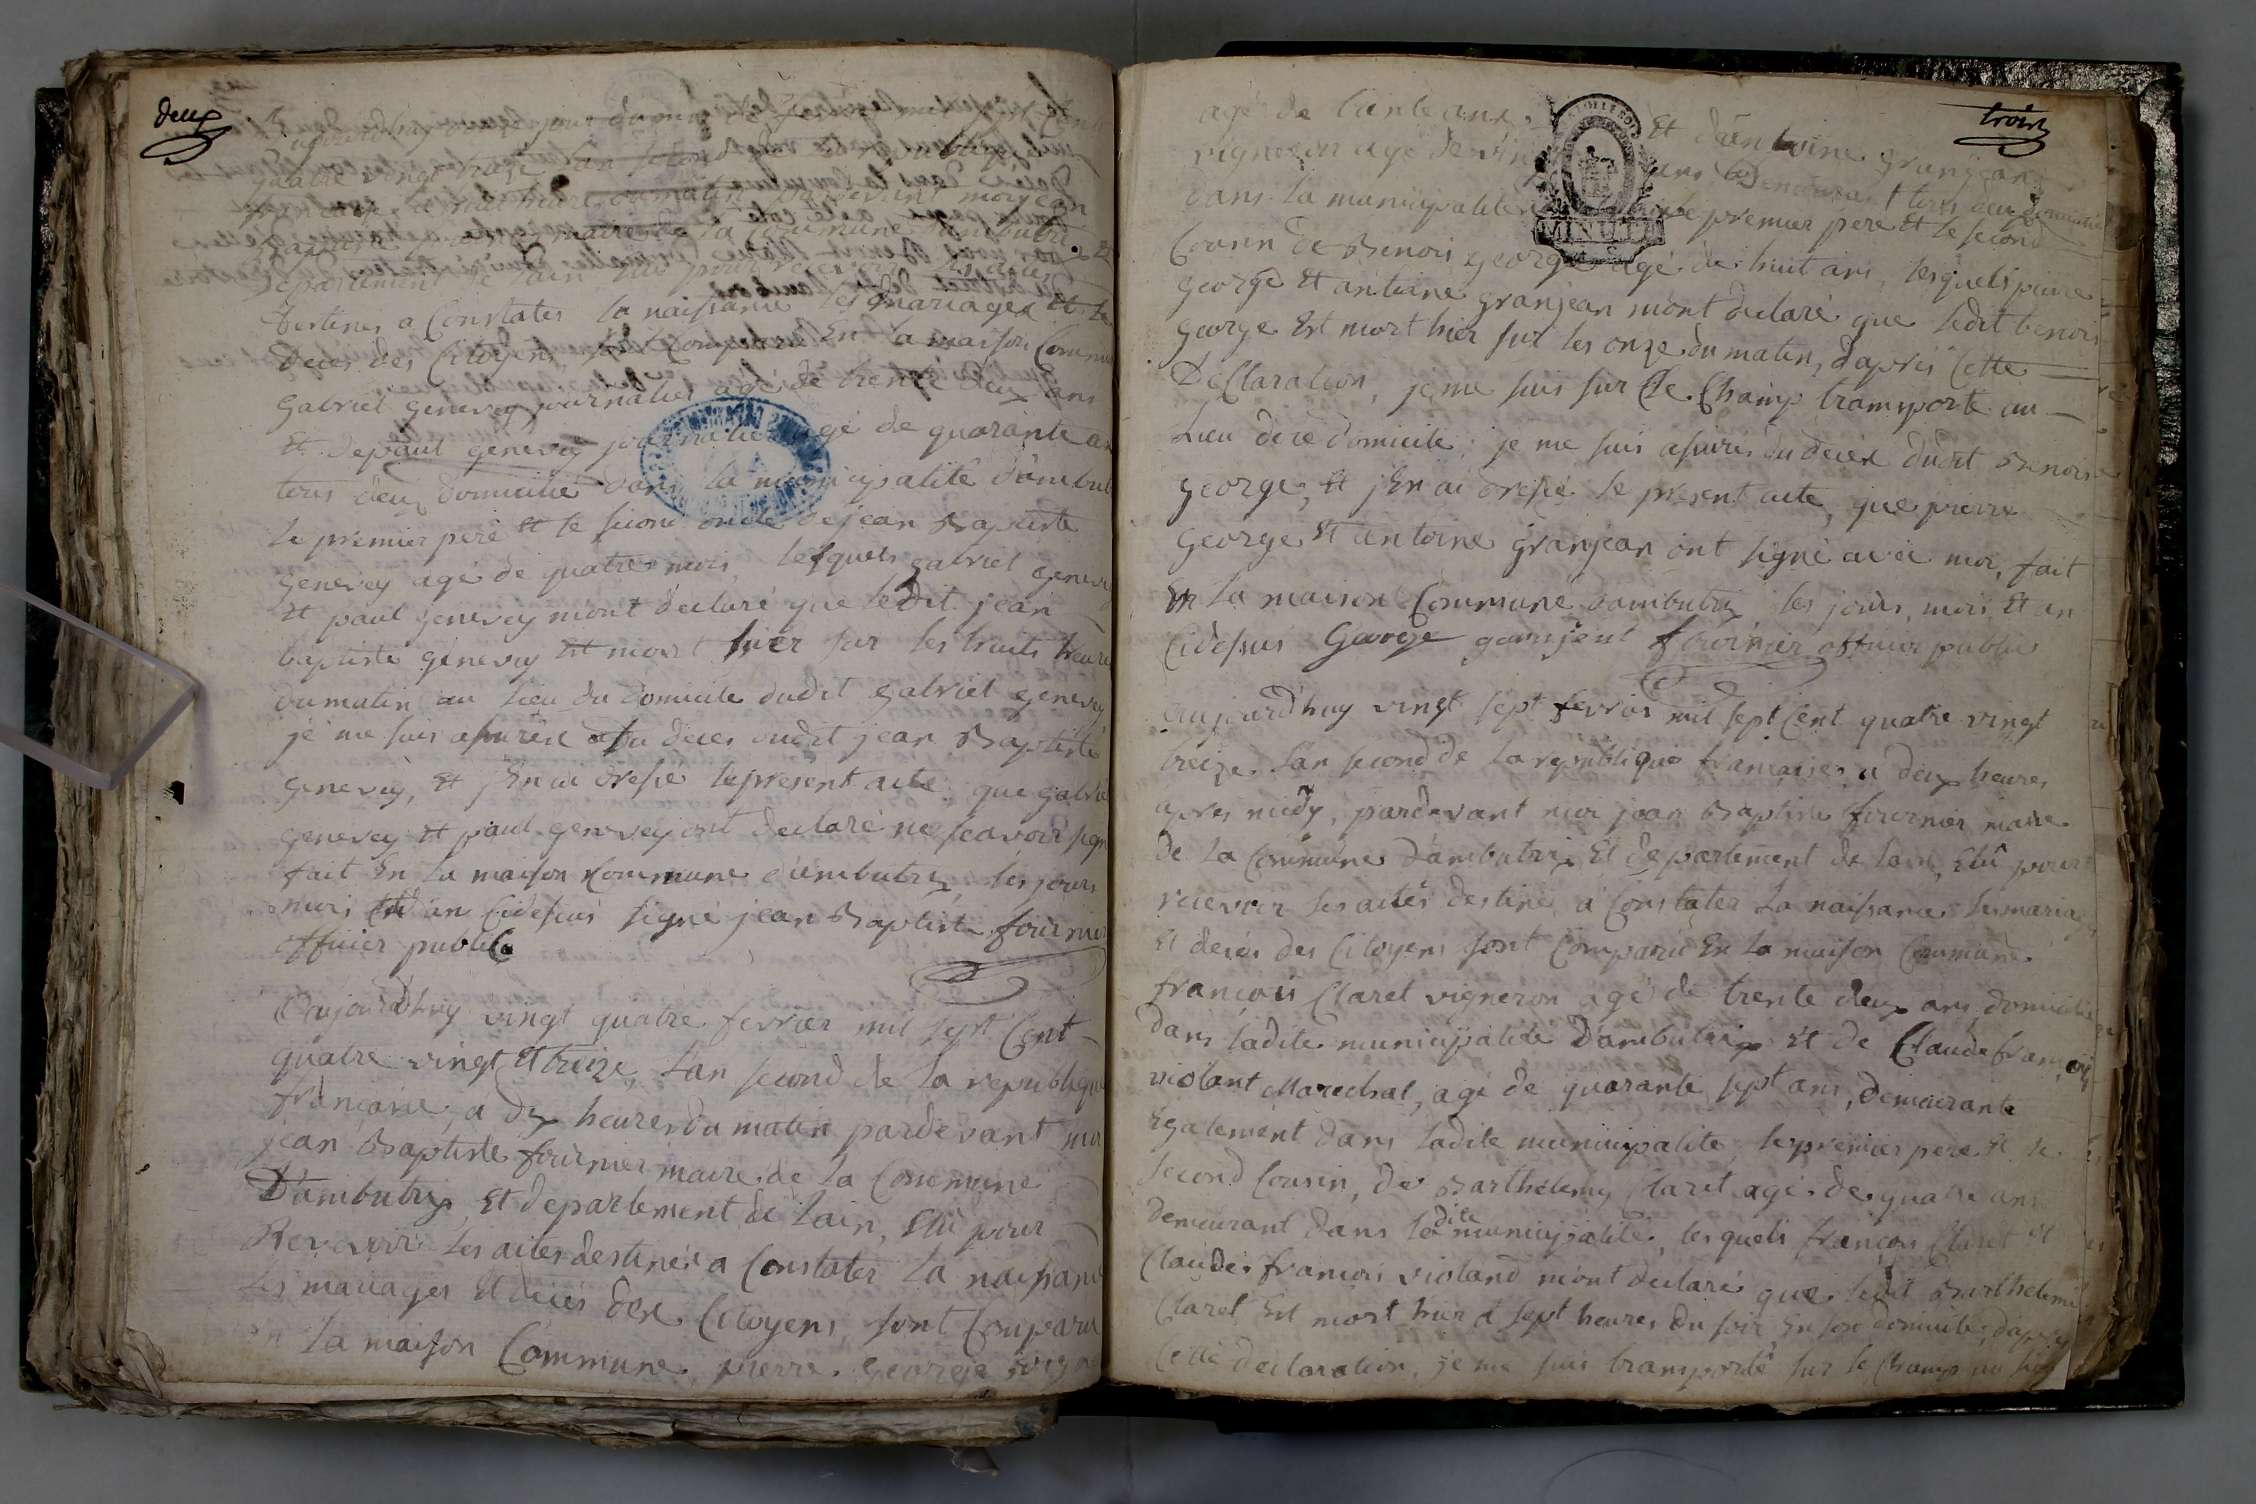 deux
aujourdhuy jour du mois de fevrier mil sept cent
quatre vingt treize L'an second de la republique
francaise, a heures du matin par devent moy jean
Baptiste maire de la Commune dambutrix
departement de lain elu pour recevoir les actes
destinés a Constater la naissance les mariages et le
deces des Citoyens, sont Comparu En la maison Commu
Gabriel genevey journalier agé de trente deux ans
Et de paul genevey journalier agé de quarante an
tous deux domicilié dans la municipalité d'ambut
le premier pere et le second oncle de jean Baptiste
Genevey agé de quatre mois, lesquels gabriel genevey
Et paul genevey mont declaré que ledit jean
baptiste genevey Est mort hier sur les huits heure
du matin au lieu du domicile dudit gabriel genevey
je me suis assurés du deces dudit jean Baptiste
Genevey, Et jEn ai dressé le present acte que gabriel
genevey et paul genevey ont declaré ne sçavoir sign
fait En la maison Commune d'ambutrix les jours
mois Et an Cidessus signé jean Baptiste fournier
officier public
Aujourdhuy vingt quatre fevrier mil sept Cent
quatre vingt Et treize, L'an second de la republique
française, a dix heures du matin pardevant moi
jean Baptiste fournier maire de la Commune
D'ambutrix, Et departement de Lain, Elû pour
Recevoir les actes destinés a Constater la naissance
les mariages Et décès des Citoyens, sont Comparu
En la maison Commune, pierre George
trois
agé de ans, Et d'antoine granjean
vigneron agé de ans Demeurant tous deux
dans la municipalité le premier pere Et le second
Cousin de Benois george agé de huit ans, lesquels pierre
george Et antoine granjean m'ont declaré que ledit benois
george Est mort hier sur les onze du matin, d'apres Cette
Declaration, je me suis sur le Champ transporté au
Lieu de ce domicile, je me suis assurés du décès dudit Benois
george, Et jEn ai dressé le present acte, que pierre
George Et antoine granjean ont signé avec moi, fait
En la maison Commune dambutrix les jours, mois Et an
Cidessus George garnjent fournier officier public
MINUTE
aujourdhuy vingt sept fevrier mil sept Cent quatre vingt
treize L'an second de la republique française, a deux heures
apres midy, pardevant moi jean Baptiste fournier maire
de la Commune d'ambutrix Et departement de Lain, Elû pour
recevoir les actes destiné a Constater la naissance les mariag
Et deces des Citoyens sont Comparu En la maison Commune
françois Claret vigneron agé de trente deux ans domicilié
dans ladite municipalité Dambutrix Et de Claude françois
violant Marechal, agé de quarante sept ans, demeurante
Egalement dans ladite municipalité, le premier pere Et le
second Cousin, de Barthelemy Claret agé de quatre ans
demeurant dans ladite municipalité, lesquels françois Claret Et
Claude françois violand m'ont declaré que ledit Barthelemi
Claret Est mort hier a sept heures du soir En son domicile, dapres
Cette declaration, je me suis transporté sur le Champ au lieu